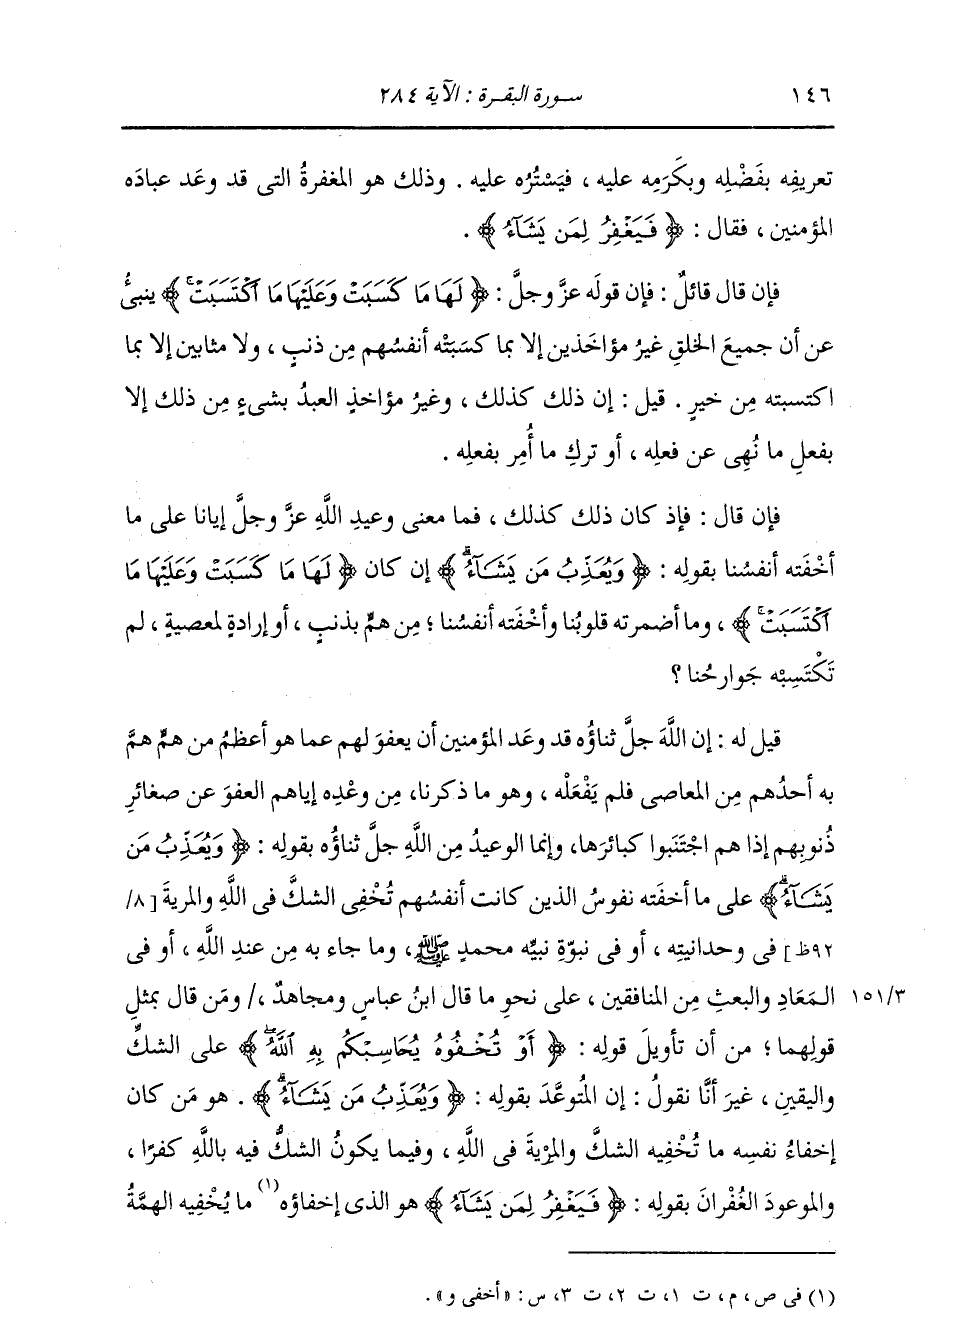 ١٤٦ سورة البقرة : الآية ٢٨٤
تعريفِه بفَضْلِه وبكَرَمِه عليه ، فيَسْتُرُه عليه . وذلك هو المغفرةُ التى قد وعَد عبادَه
المؤمنين ، فقال : ﴿ فَيَغْفِرُ لِمَن يَشَآءُ ﴾ .
فإن قال قائلٌ : فإن قولَه عزَّ وجلَّ : ﴿ لَهَا مَا كَسَبَتْ وَعَلَيْهَا مَا ٱكْتَسَبَتْ ﴾ ينبىُ
عن أن جميعَ الخلقِ غيرُ مؤاخَذين إلا بما كسَبَتْه أنفسُهم مِن ذنبٍ ، ولا مثابين إلا بما
اكتسبته مِن خيرٍ . قيل : إن ذلك كذلك ، وغيرُ مؤاخذٍ العبدُ بشىءٍ مِن ذلك إلا
بفعلِ ما نُهِى عن فعلِه ، أو تركِ ما أُمِر بفعلِه .
فإن قال : فإذ كان ذلك كذلك ، فما معنى وعيدِ اللَّهِ عزَّ وجلَّ إيانا على ما
أخْفَته أنفسُنا بقولِه : ﴿ وَيُعَذِّبُ مَن يَشَآءُ ﴾ إن كان ﴿ لَهَا مَا كَسَبَتْ وَعَلَيْهَا مَا
ٱكْتَسَبَتْ ﴾ ، وما أضمرته قلوبُنا وأخْفَته أنفسُنا ؛ مِن همٍّ بذنبٍ ، أو إرادةٍ لمعصيةٍ ، لم
تَكْتَسِبْه جَوارحُنا ؟
قيل له : إن اللَّهَ جلَّ ثناؤُه قد وعَد المؤمنين أن يعفوَ لهم عما هو أعظمُ من همٍّ همَّ
به أحدُهم مِن المعاصى فلم يَفْعَلْه ، وهو ما ذكرنا، مِن وعْدِه إياهم العفوَ عن صغائرِ
ذُنوبِهم إذا هم اجْتَنَبوا كبائرَها، وإنما الوعيدُ مِن اللَّهِ جلَّ ثناؤُه بقولِه : ﴿ وَيُعَذِّبُ مَن
يَشَآءُ ﴾ على ما أخفَته نفوسُ الذين كانت أنفسُهم تُخْفِى الشكَّ فى اللَّهِ والمريةَ [ ٨/
٩٢ظ ] فى وحدانيتِه ، أو فى نبوّةِ نبيِّه محمدٍ ﷺ، وما جاء به مِن عندِ اللَّهِ ، أو فى
٣/ ١٥١ المَعَادِ والبعثِ مِن المنافقين ، على نحوِ ما قال ابنُ عباسٍ ومجاهدٌ ،/ ومَن قال بمثلِ
قولِهما ؛ من أن تأويلَ قولِه : ﴿ أَوْ تُخْفُوهُ يُحَاسِبْكُم بِهِ ٱللَّهُ ﴾ على الشكِّ
واليقينِ ، غيرَ أنَّا نقولُ : إن المُتوعَّدَ بقولِه : ﴿ وَيُعَذِّبُ مَن يَشَآءُ ﴾ . هو مَن كان
إخفاءُ نفسِه ما تُخْفِيه الشكَّ والمِرْيةَ فى اللَّهِ ، وفيما يكونُ الشكُّ فيه باللَّهِ كفرًا ،
والموعودَ الغُفْرانَ بقولِه : ﴿ فَيَغْفِرُ لِمَن يَشَآءُ ﴾ هو الذى إخفاؤه(١) ما يُخْفِيه الهمَّةُ
(١) فى ص ، م ، ت ١، ت ٢، ت ٣، س : «أخفى و» .